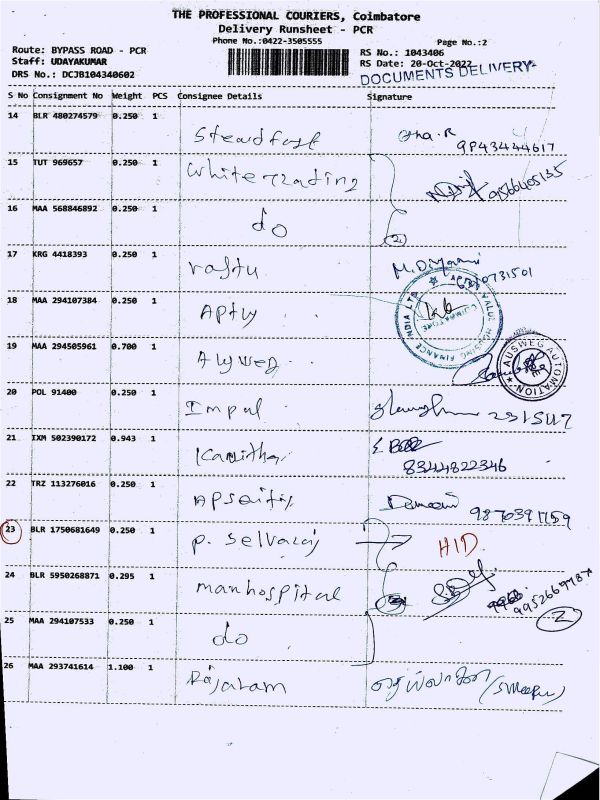 THE PROFESSIONAL COURIERS, Coimbatore
Delivery Runsheet - PCR
Phone No.:0422-3505555
Page No.:2
Route: BYPASS ROAD - PCR
RS No.: 1043406
Staff: UDAYAKUMAR
RS Date: 20-Oct-2022
DRS No.: DCJB104340602
DOCUMENTS DELIVERY
S No Consignment No Weight PCS Consignee Details Signature
14 BLR 480274579 0.250 1 Steadfast
9P43444617
15 TUT 969657 0.250 1 White Trading
9566405135
16 MAA 568846892 0.250 1 do
2
17 KRG 4418393 0.250 1 rastu
18 MAA 294107384 0.250 1 Aptus
VALUE HOUSING FINANCE INDIA LTD
COIMBATORE
19 MAA 294505961 0.700 1
AUSWEG AUTOMATION
20 POL 91400 0.250 1 Impul
21 IXM 502390172 0.943 1 Kavitha
8344822346
22 TRZ 113276016 0.250 1
9870391759
23 BLR 1750681649 0.250 1 P. Selvaraj HID.
24 BLR 5950268871 0.295 1 manhospital
2
25 MAA 294107533 0.250 1 do
26 MAA 293741614 1.100 1 Rajaram